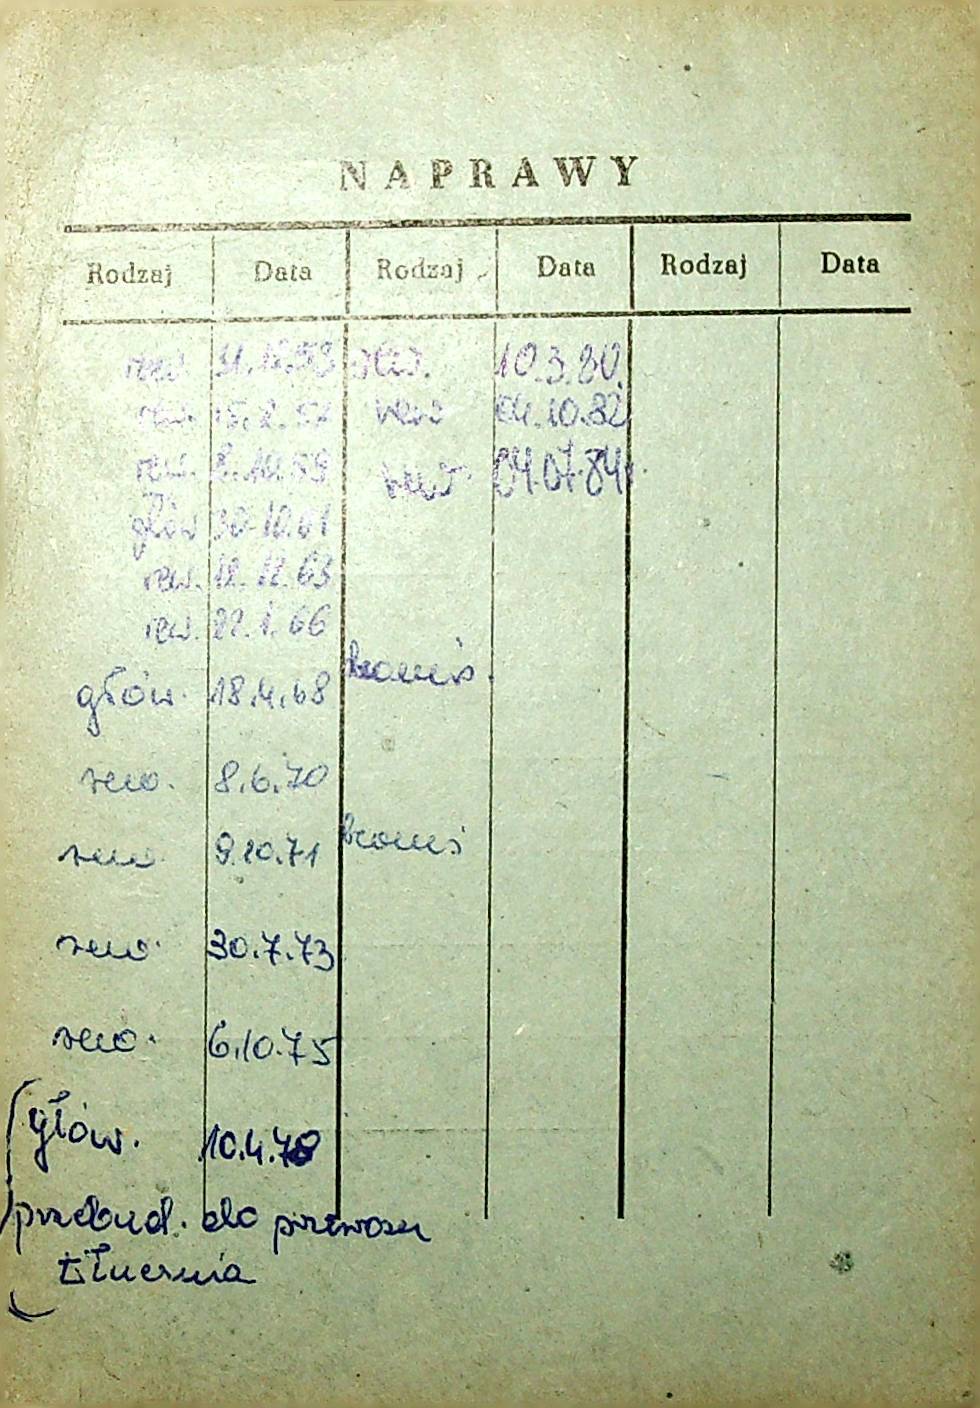 NAPRAWY
Rodzaj Data Rodzaj Data Rodzaj Data
rew. rew. 10.3.80
rew. rew 04.10.82
rew. rew. 04.07.84r.
głów 30.10.61
rew. 12.12.63
rew. 22.1.66
głów. 18.4.68
rew. 8.6.70
rew. 9.10.71
rew. 30.7.73
rew. 6.10.75
głów. 10.4.78
przebud. do przewozu
tłucznia